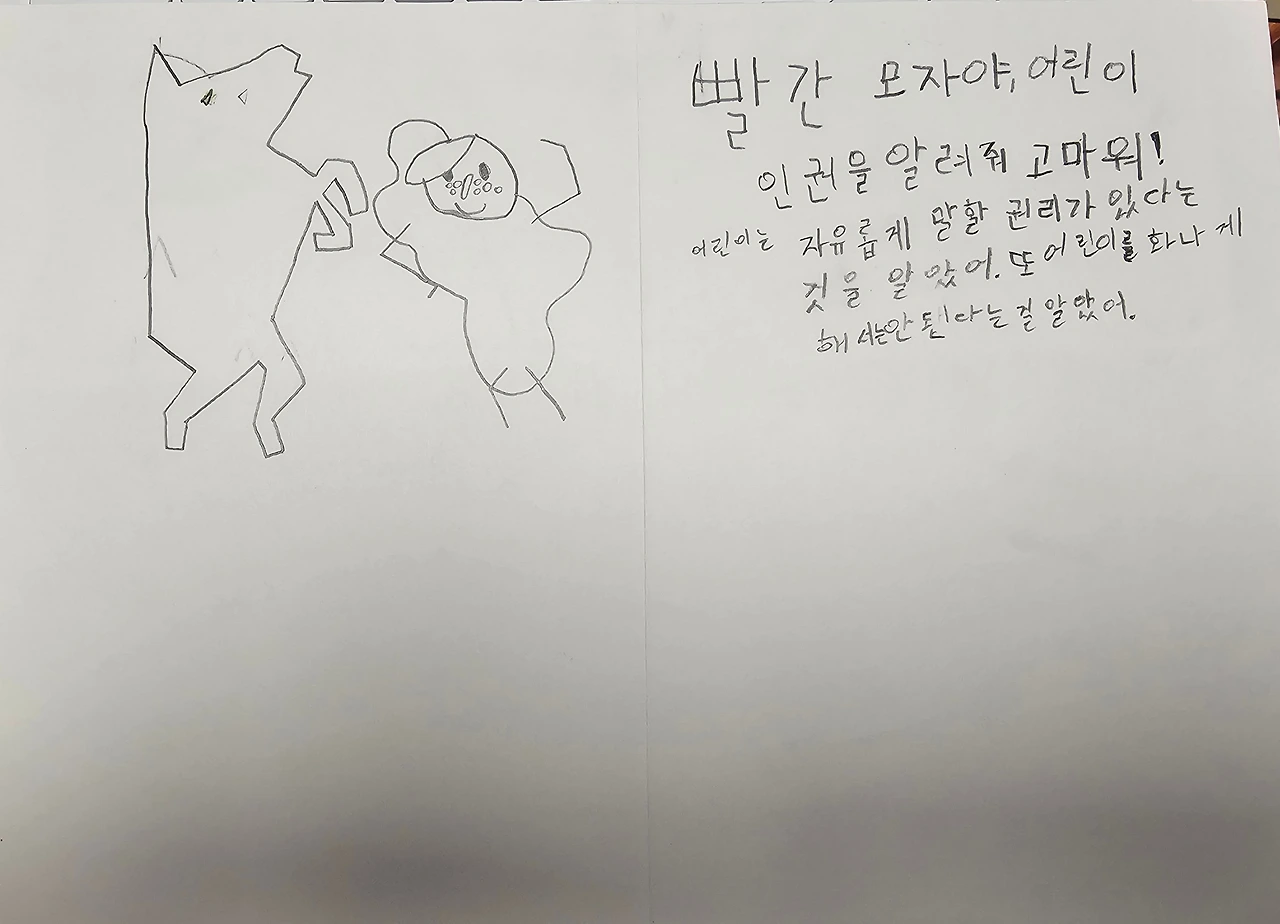 빨간 모자야, 어린이
인권을 알려줘 고마워!
어린이는 자유롭게 말할 권리가 있다는
것을 알았어. 또 어린이를 화나게
해서는안 된다는걸 알았어.